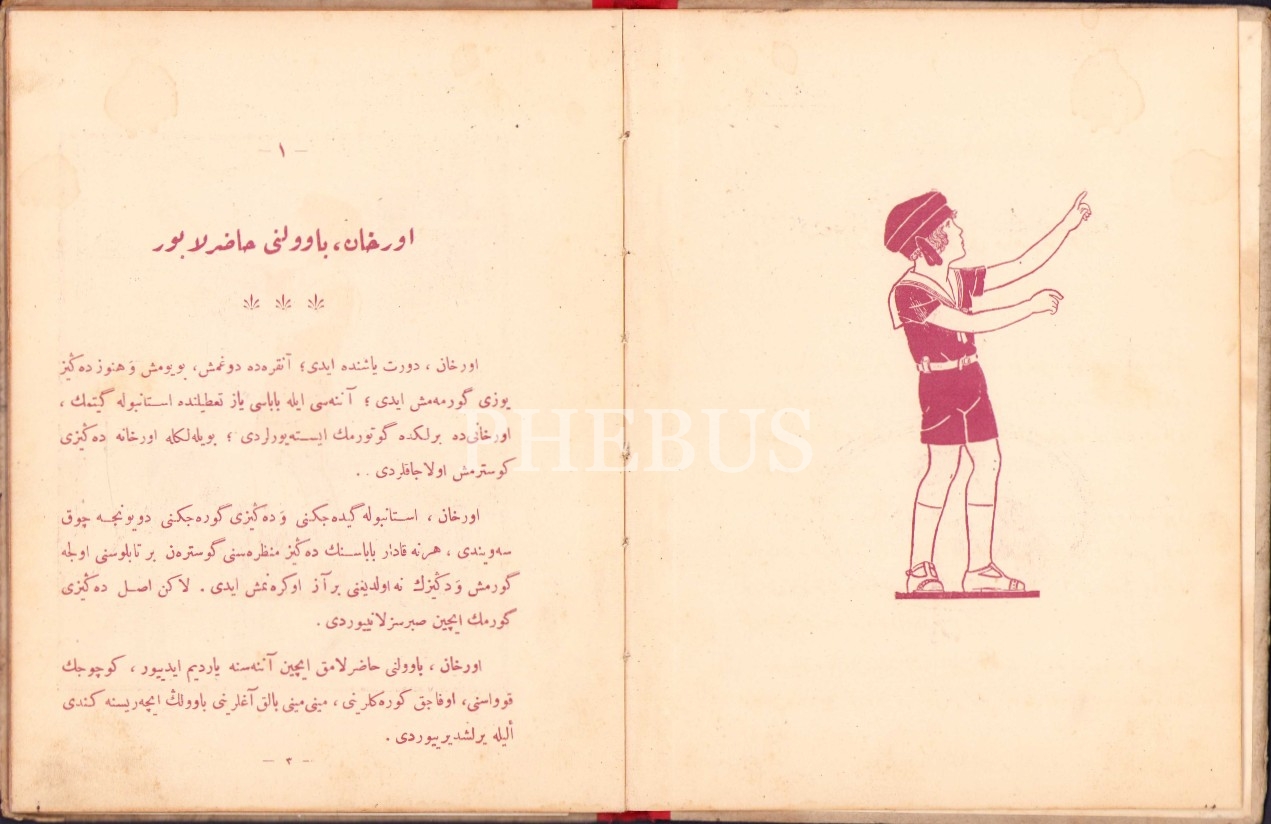 — ١ —
اورخان، باوولنی حاضرلايور
اورخان ، دورت ياشنده ايدی؛ آنقره‌ده دوغمش، بويومش وَ هنوز ده‌ڭيز
يوزی گورمه‌مش ايدی ؛ آننه‌سی ايله باباسی ياز تعطيلنده استانبوله گيتمك ،
اورخانی‌ده برلكده گوتورمك ايسته‌يورلردی ؛ بويله‌لكله اورخانه ده‌ڭيزی
كوسترمش اولاجاقلردی . .
اورخان ، استانبوله گيده‌جكنی وَ ده‌ڭيزی گوره‌جكنی دويونجه چوق
سه‌ويندی ، هرنه قادار باباسنك ده‌ڭيز منظره‌سنی گوستره‌ن بر تابلوسنی اولجه
گورمش وَ دڭيزك نه اولديغنی بر آز اوكره‌نمش ايدی . لاكن اصل ده‌ڭيزی
گورمك ايچين صبرسزلانييوردی .
اورخان ، باوولنی حاضرلامق ايچين آننه‌سنه يارديم ايدييور ، كوچوجك
قوواسنی، اوفاجق كوره‌كلرينی ، مينی‌مينی بالق آغلرينی باوولڭ ايچه‌ريسنه كندی
أليله يرلشديرييوردی .
— ٣ —
PHEBUS